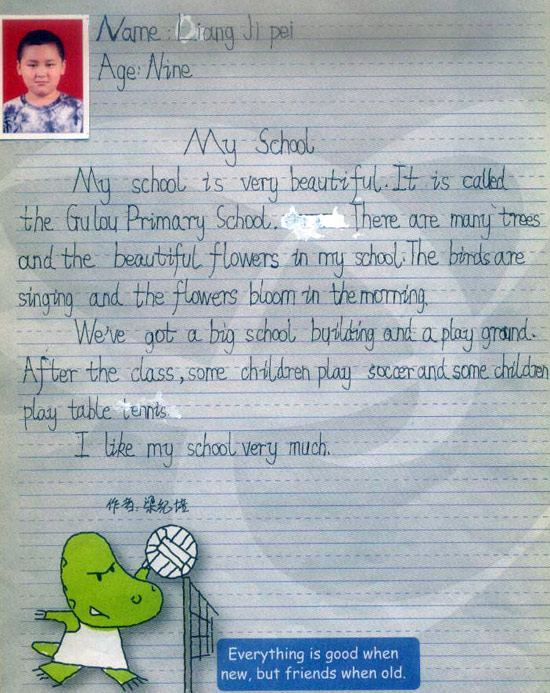 Name: Liang Ji pei
Age: Nine
My School
My school is very beautiful. It is called
the Gulou Primary School. There are many trees
and the beautiful flowers in my school. The birds are
singing and the flowers bloom in the morning.
We've got a big school building and a play ground.
After the class, some children play soccer and some children
play table tennis.
I like my school very much.
作者:梁纪培
Everything is good when
new, but friends when old.